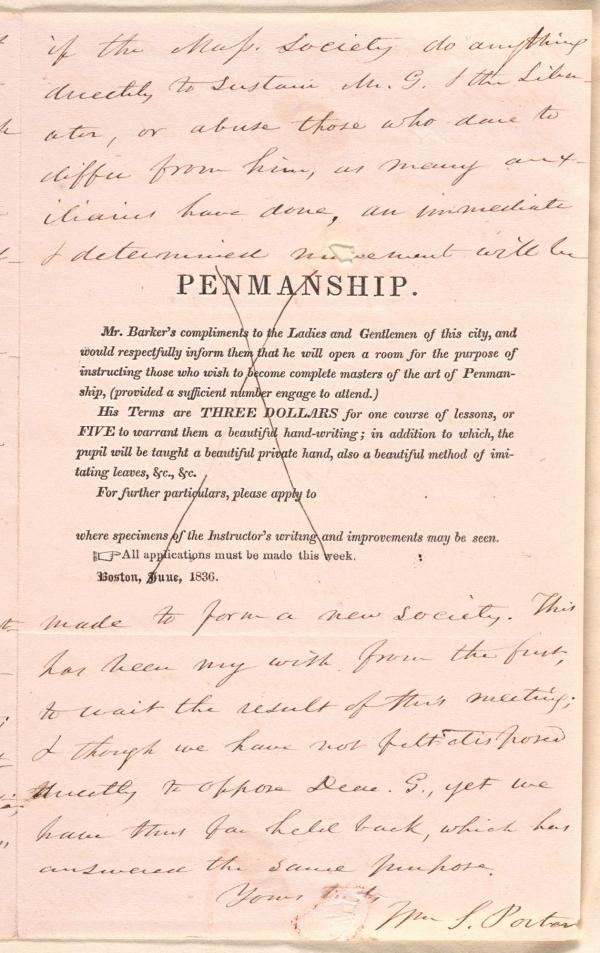 if the Mass. Society do anything
directly to sustain Mr. G. & the Liber-
ator, or abuse those who dare to
differ from him, as many aux-
iliaries have done, an immediate
& determined movement will be
PENMANSHIP.
Mr. Barker's compliments to the Ladies and Gentlemen of this city, and
would respectfully inform them that he will open a room for the purpose of
instructing those who wish to become complete masters of the art of Penman-
ship, (provided a sufficient number engage to attend.)
His Terms are THREE DOLLARS for one course of lessons, or
FIVE to warrant them a beautiful hand-writing; in addition to which, the
pupil will be taught a beautiful private hand, also a beautiful method of imi-
tating leaves, &c., &c.
For further particulars, please apply to
where specimens of the Instructor's writing and improvements may be seen.
☞All applications must be made this week.
Boston, June, 1836.
made to form a new society. This
has been my wish from the first,
to wait the result of this meeting;
& though we have not felt disposed
directly to oppose Deac. G., yet we
have thus far held back, which has
answered the same purpose.
Yours truly
Wm S. Porter